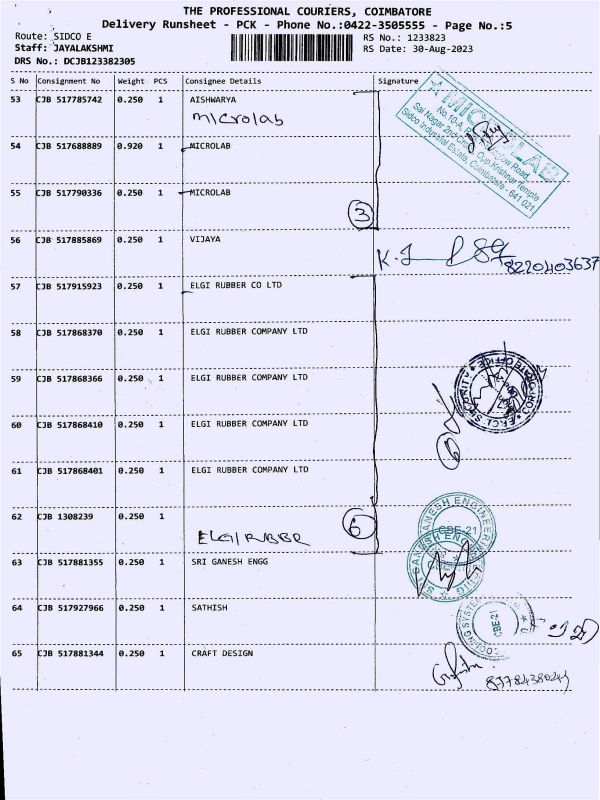 THE PROFESSIONAL COURIERS, COIMBATORE
Delivery Runsheet - PCK - Phone No.:0422-3505555 - Page No.:5
Route: SIDCO E
RS No.: 1233823
Staff: JAYALAKSHMI
RS Date: 30-Aug-2023
DRS No.: DCJB123382305
S No Consignment No Weight PCS Consignee Details Signature
53 CJB 517785742 0.250 1 AISHWARYA
Microlab
54 CJB 517688889 0.920 1 MICROLAB
55 CJB 517790336 0.250 1 MICROLAB
3
No.10-A,
Sai Nagar 2nd Cross, Opp.Krishnar Temple
Sidco Industrial Estate, Coimbatore - 641 021
56 CJB 517885869 0.250 1 VIJAYA
8220403637
57 CJB 517915923 0.250 1 ELGI RUBBER CO LTD
58 CJB 517868370 0.250 1 ELGI RUBBER COMPANY LTD
59 CJB 517868366 0.250 1 ELGI RUBBER COMPANY LTD
60 CJB 517868410 0.250 1 ELGI RUBBER COMPANY LTD
61 CJB 517868401 0.250 1 ELGI RUBBER COMPANY LTD
62 CJB 1308239 0.250 1
ELGI RUBBER
6
CBE-21
63 CJB 517881355 0.250 1 SRI GANESH ENGG
64 CJB 517927966 0.250 1 SATHISH
CBE-21
65 CJB 517881344 0.250 1 CRAFT DESIGN